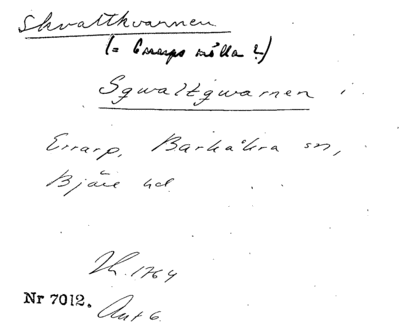 Skvattkvarnen
(= Errarps mölla?)
Sqwaltqwarnen i
Errarp, Barkåkra sn,
Bjäre hd
Jb. 1764
Nr 7012. Akt 6